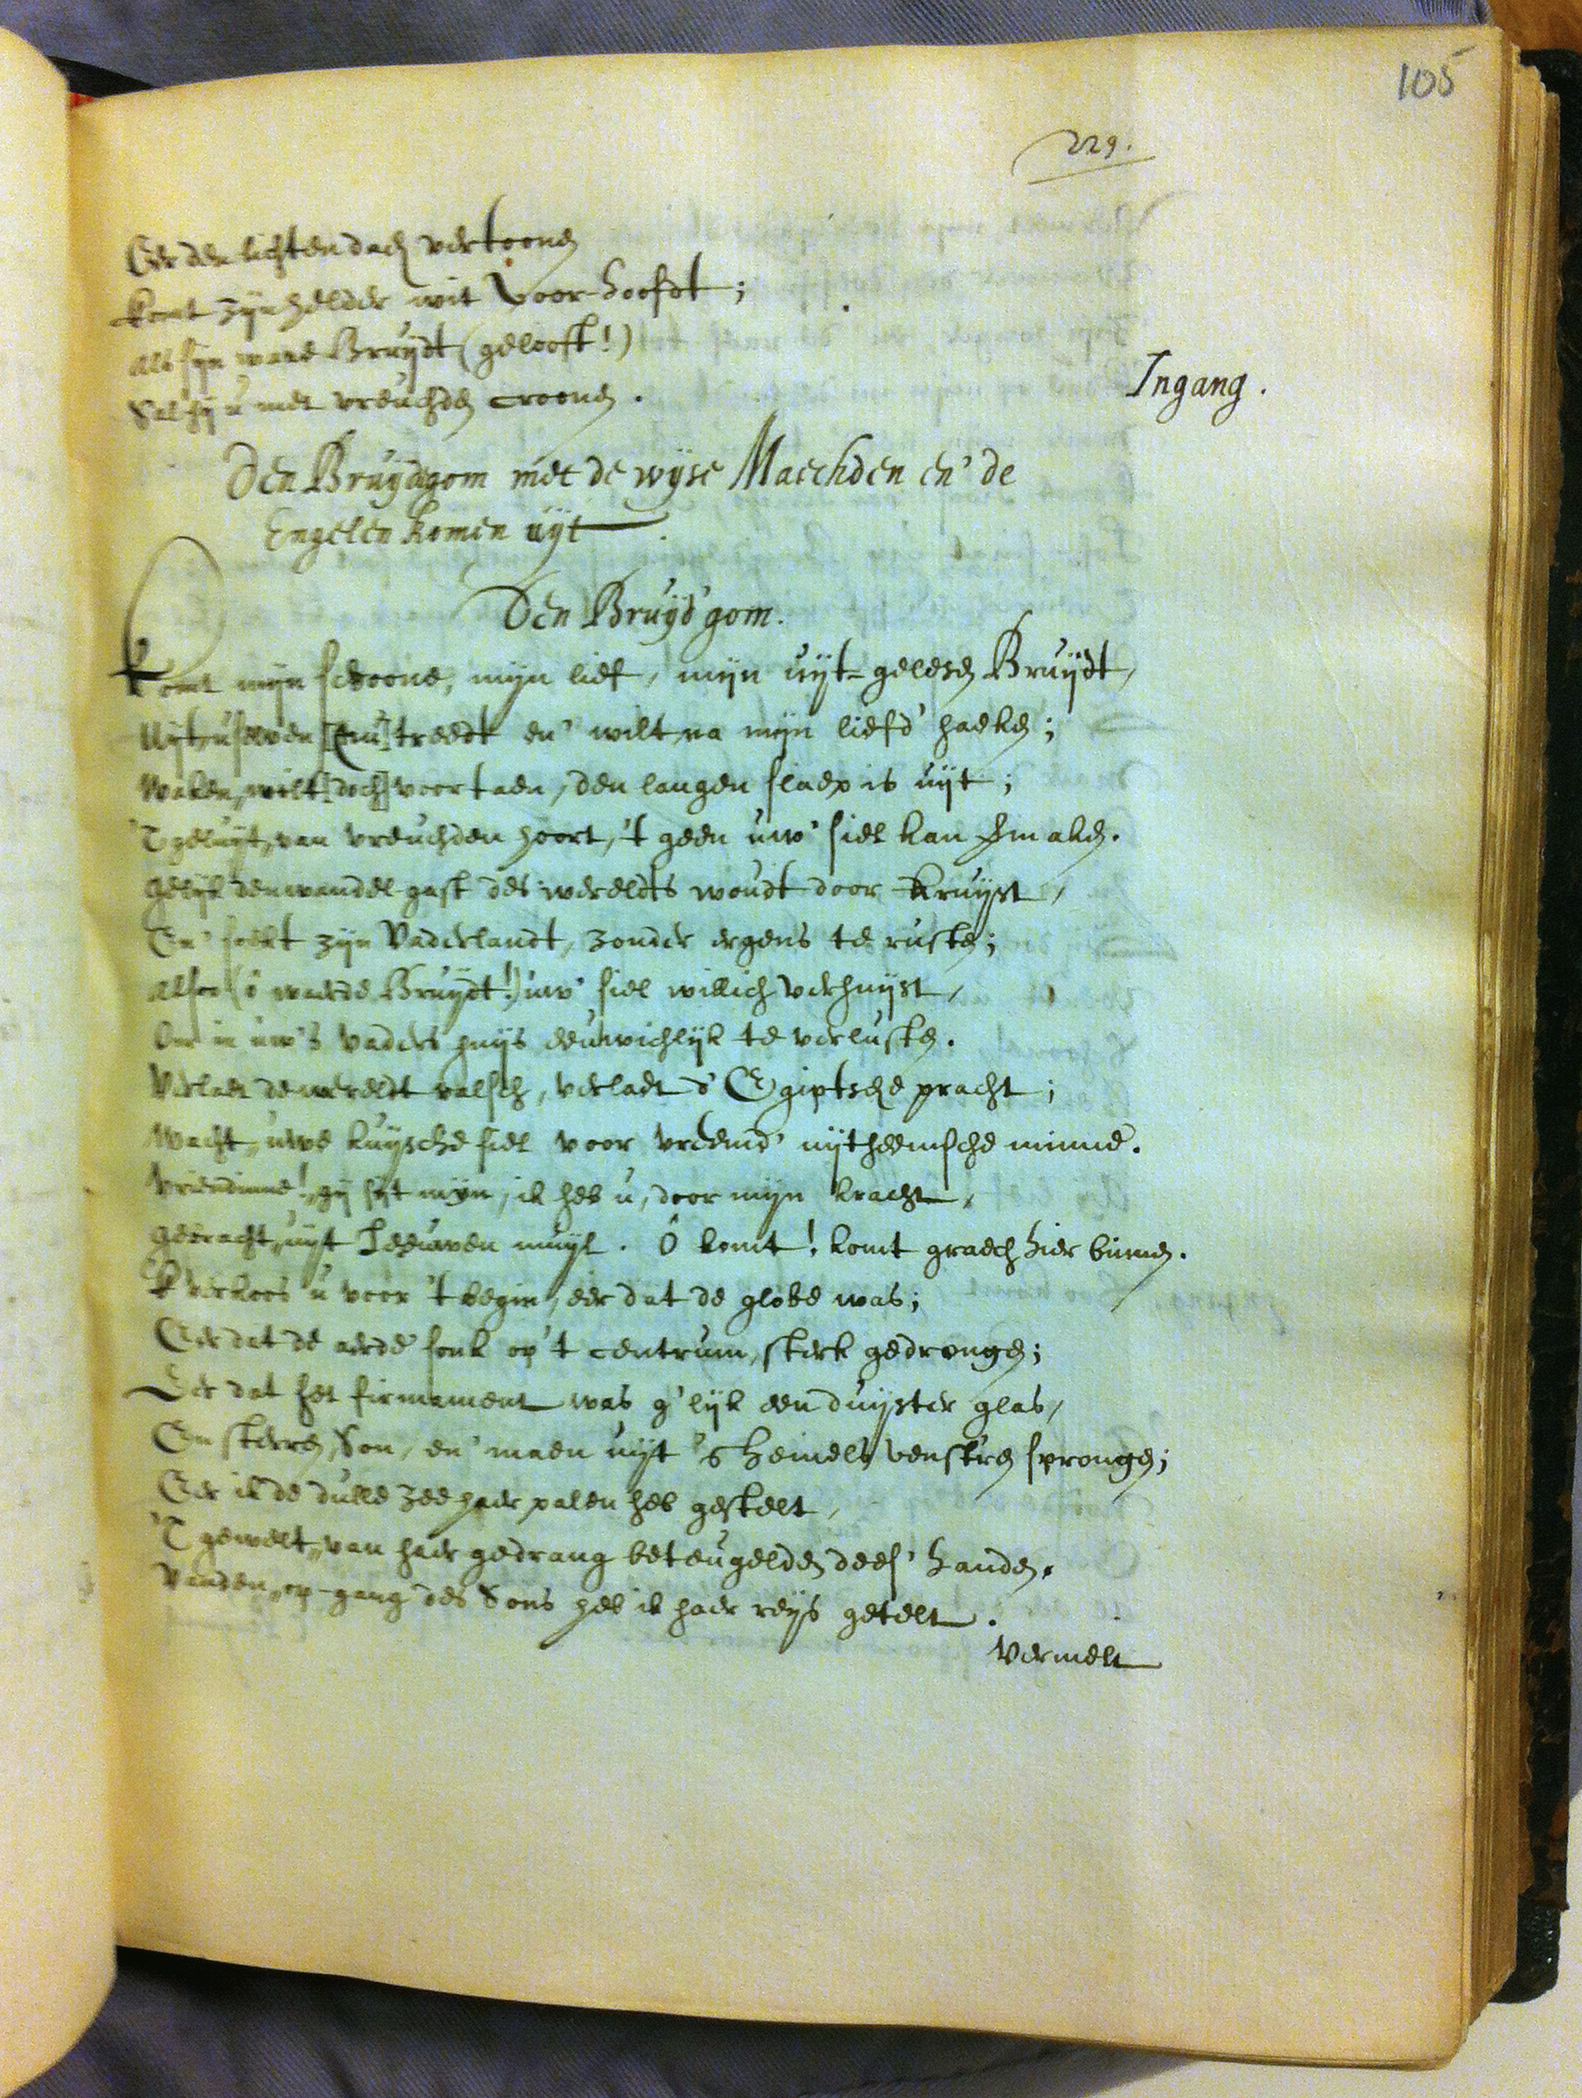 105
229.
Eer den lichten dach vertoonen
komt zijn helder wit voor-hoofdt;
Als sijn ware Bruydt (gelooft!)
Sal hy u met vreuchden croonen.
Ingang.
Den Bruydgom met de wyse Maechden en' de
Engelen komen uyt.
Den Bruyd'gom.
Komt mijn schoone, mijn lief, mijn uyt-gelesen Bruydt,
Uyt, u selven [nu] treedt en' wilt, na mijn liefd' haeken;
Waken, wilt [doch] voortaen, den langen slaep is uyt;
'T geluyt, van vreuchden hoort, 't geen uw' siel kan smaken.
Gelijk den wandel-gast des werelts woudt door-kruyst,
En' soekt zijn Vaderlandt, zonder ergens te rusten;
Alsoo (ô waerde Bruydt!) uw' siel willich verhuyst,
Om in uw's Vaders huys eeuwichlijk te verlusten.
Verlaet de wereldt valsch, verlaet d' Egiptsche pracht;
Wacht, uwe kuysche siel voor vreemd' uytheemsche minne.
Vriendinne!, gy sijt mijn, ik heb u, door mijn kracht,
Gebracht, uyt Leeuwen muyl. Ô komt! komt graech hier binnen.
'K verkoos u voor 't begin, eer dat de globe was;
Eer dat de aerde sonk op 't centrum, sterk gedrongen;
Eer dat het firmament was g'lijk een duyster glas,
En sterren, Son, en' maen uyt 's hemels venstren sprongen;
Eer ik de dulle zee haer palen heb gestelt,
'T gewelt, van haer gedrang beteugelden dees' handen,
Vanden, op-gang des Sons heb ik haer reys getelt.
Vermelt